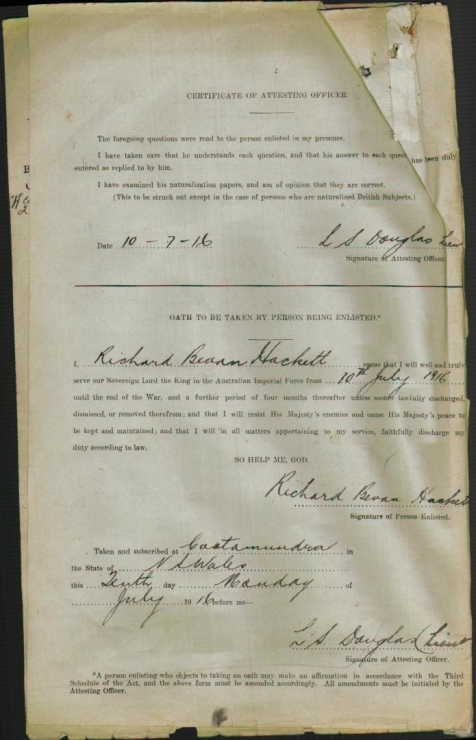 CERTIFICATE OF ATTESTING OFFICER.
The foregoing questions were read to the person enlisted in my presence.
I have taken care that he understands each question, and that his answer to each ques has been duly
entered as replied to by him.
I have examined his naturalization papers, and am of opinion that they are correct.
(This to be struck out except in the case of persons who are naturalized British Subjects.)
Date 10-7-16 L S Douglas Lieu
Signature of Attesting Officer.
OATH TO BE TAKEN BY PERSON BEING ENLISTED.*
I, Richard Bevan Hackett swear that I will well and truly
serve our Sovereign Lord the King in the Australian Imperial Force from 10th July 1916
until the end of the War, and a further period of four months thereafter unless sooner lawfully discharged,
dismissed, or removed therefrom; and that I will resist His Majesty's enemies and cause His Majesty's peace to
be kept and maintained; and that I will in all matters appertaining to my service, faithfully discharge my
duty according to law.
SO HELP ME, GOD.
Richard Bevan Hackett
Signature of Person Enlisted.
Taken and subscribed at Cootamundra in
the State of N S Wales
this Tenth day Monday of
July 1916 before me—
L S. Douglas Lieut
Signature of Attesting Officer.
*A person enlisting who objects to taking an oath may make an affirmation in accordance with the Third
Schedule of the Act, and the above form must be amended accordingly. All amendments must be initialed by the
Attesting Officer.